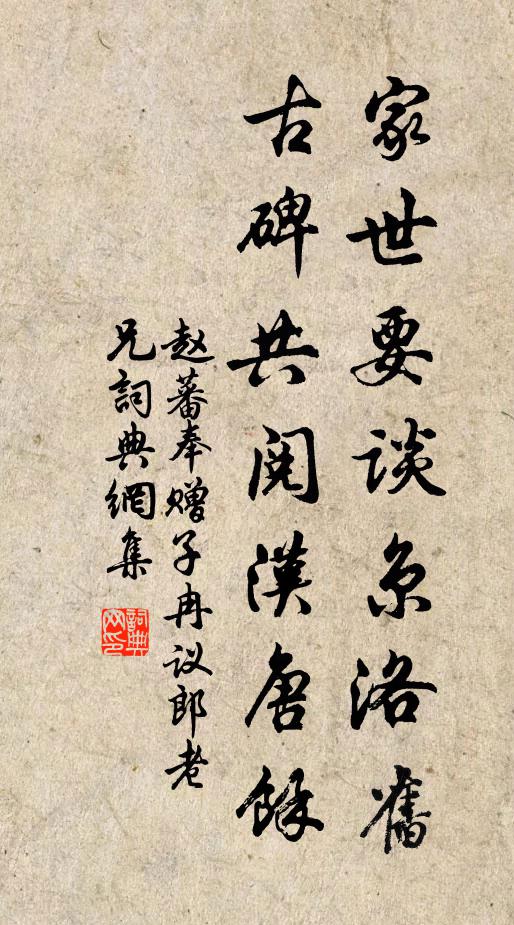 家世要谈京洛舊
古碑共閱漢唐餘
赵蕃奉赠子冉议郎老
兄詞典網集
詞典网印